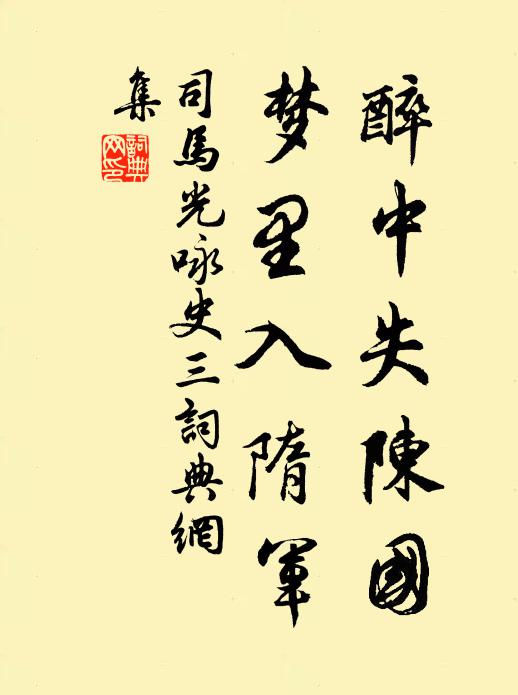 醉中失陳國
梦里入隋軍
司馬光咏史三詞典網
集
詞典
网印